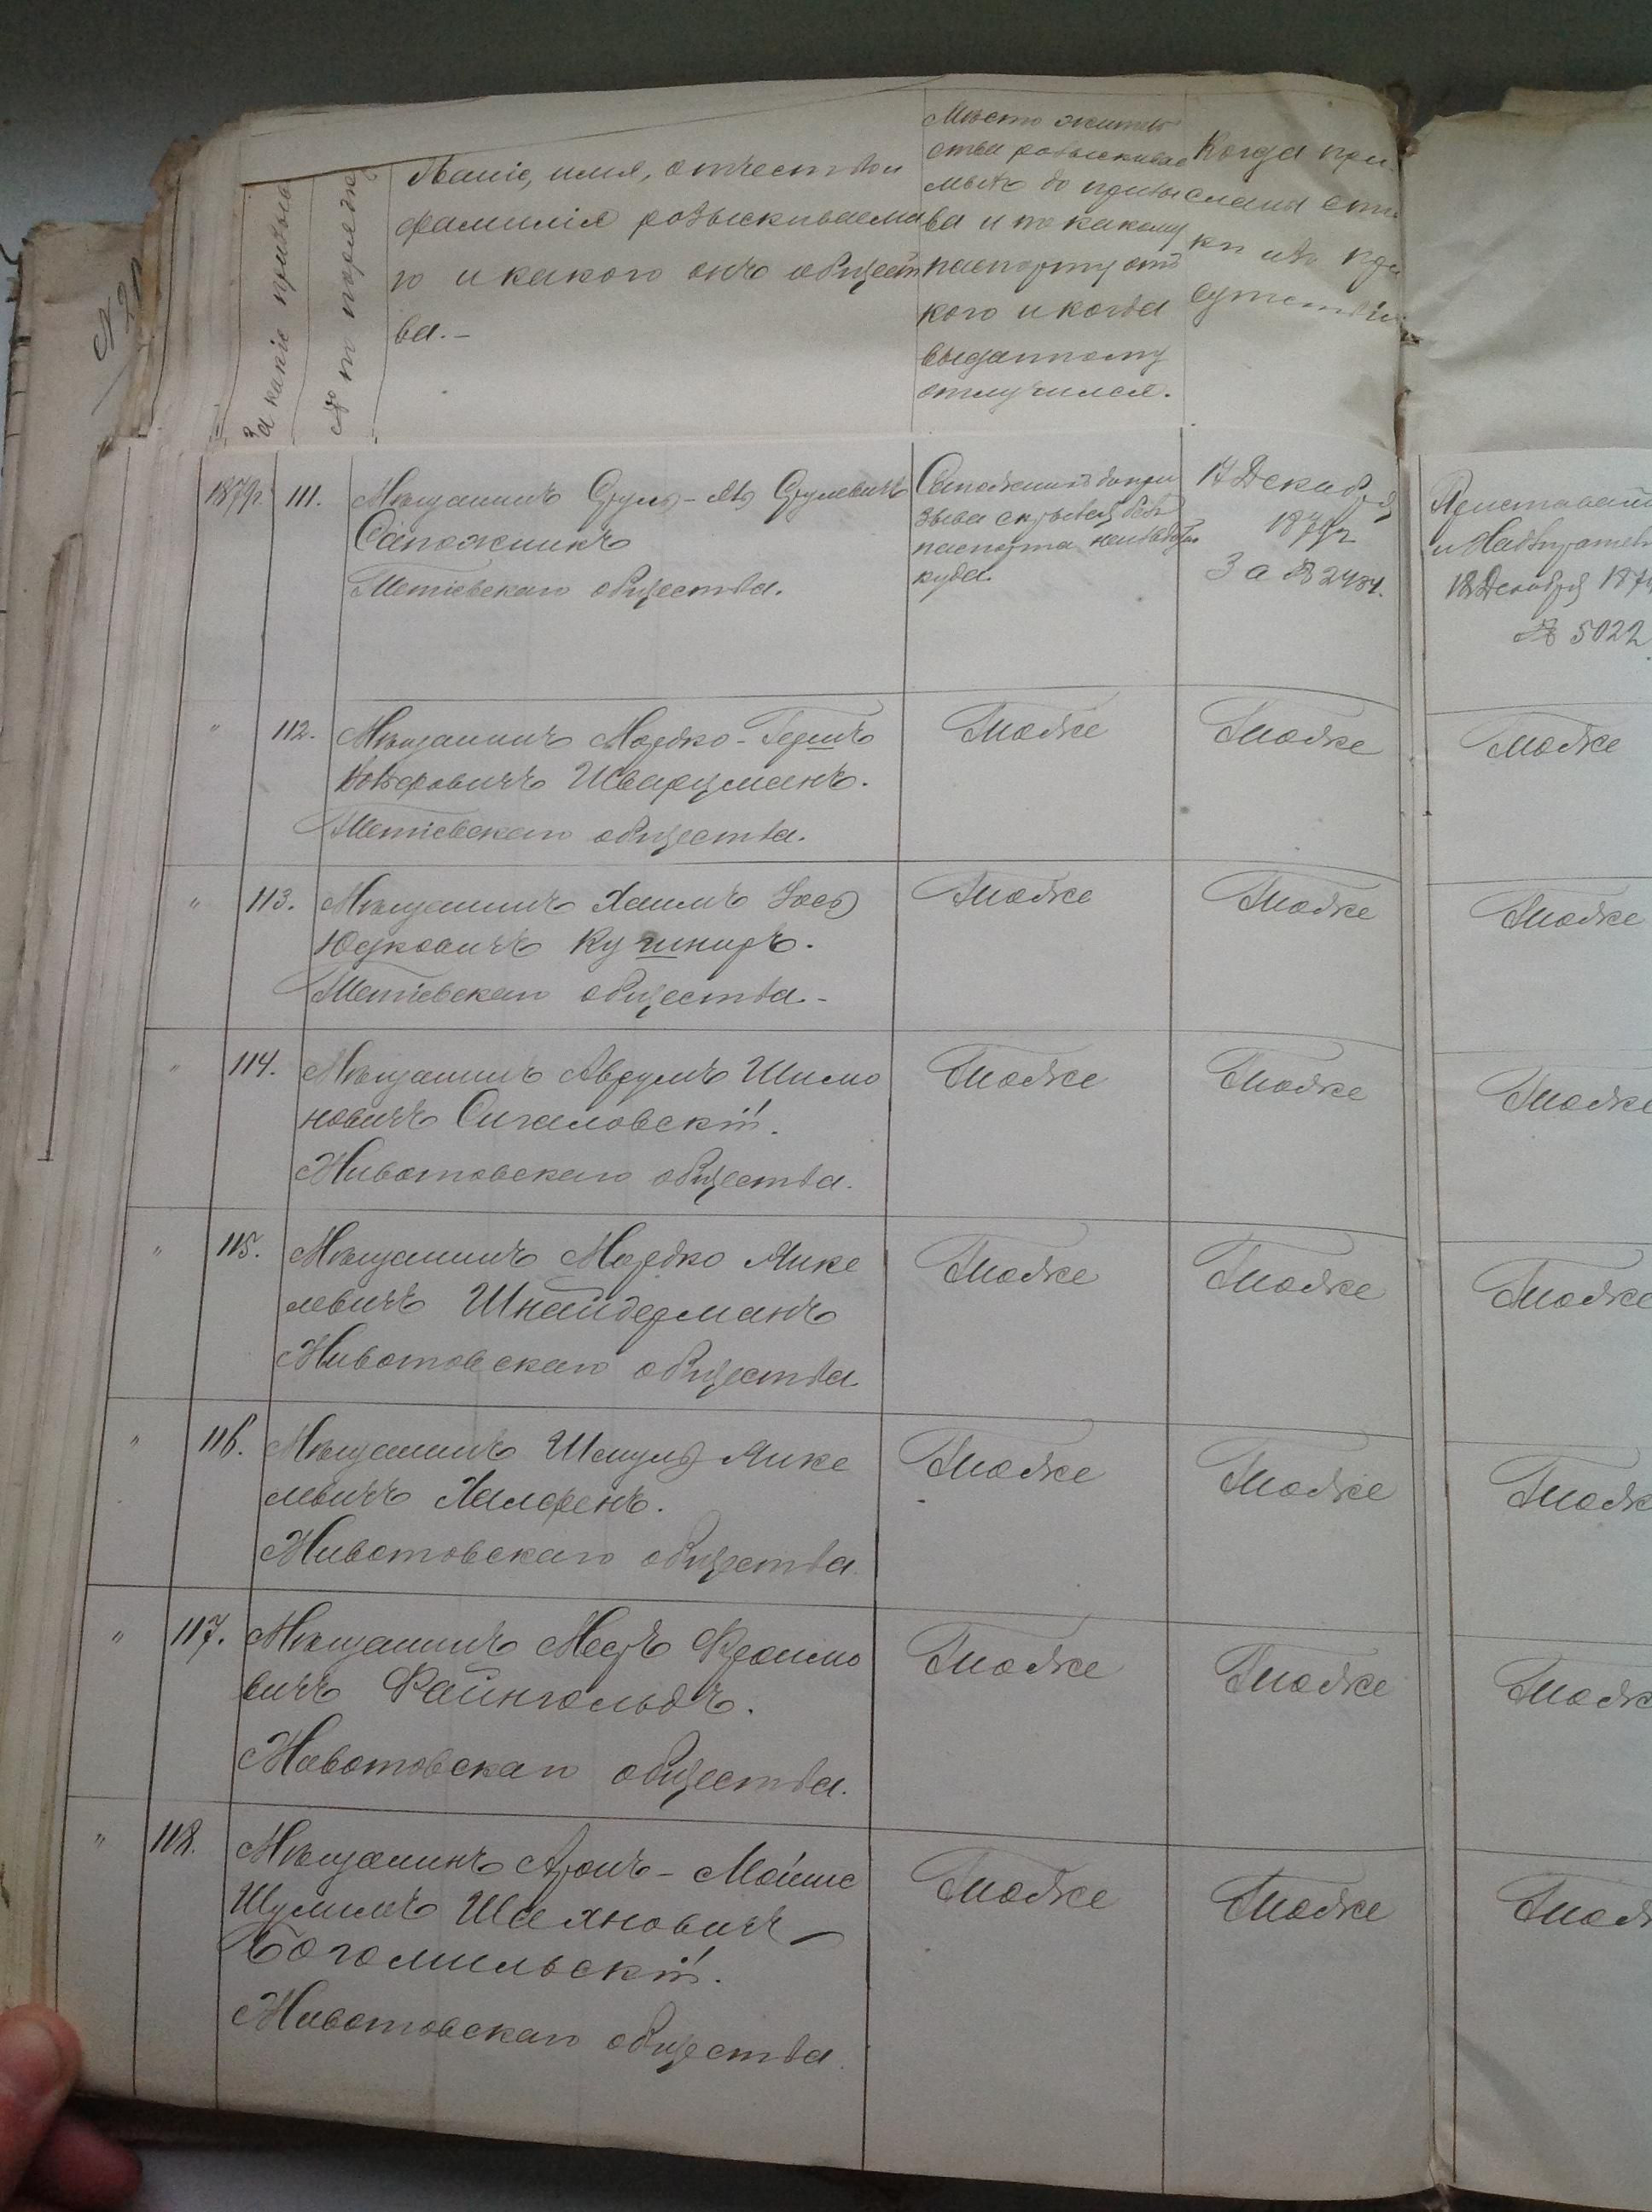 За какіе призывы
№ по порядку
Званіе, имя, отчество и
фамилія розыскиваема
го и какого онъ общест
ва.-
Мѣсто житель
ства розыскивае
маго до призы
ва и по какому
паспорту отъ
кого и когда
выданному
отлучился.
Когда при
сланы спис
ки изъ при
сутствія
1879г. 111. Мѣщанинъ Сруль- Срулевичъ
Сапожникъ
Тетіевскаго общества.
Сапожникъ до при
зыва скрылся безъ
паспорта неизвѣстно
куда.
17 Декабря
1879г
За № 2484.
18 Декабря 187
№ 5022
" 112. Мѣщанинъ Мордко-Гершъ
Шварцманъ.
Тетіевскаго общества.
Тоже
Тоже
Тоже
" 113. Мѣщанинъ Хаимъ Іось
Юдковичъ Кушниръ.
Тетіевскаго общества.-
Тоже
Тоже
Тоже
" 114. Мѣщанинъ Аврумъ Шимо
новичъ Сигаловскій.
Животовскаго общества.
Тоже
Тоже
Тоже
" 115. Мѣщанинъ Мордко Янке
левичъ Шнайдерманъ
Животовскаго общества
Тоже
Тоже
Тоже
" 116. Мѣщанинъ Шмуль Янке
левичъ Халфенъ.
Животовскаго общества.
Тоже
Тоже
Тоже
" 117. Мѣщанинъ Меръ Фроимо
вичъ Файнгольдъ.
Животовскаго общества.
Тоже
Тоже
Тоже
" 118. Мѣщанинъ Аронъ-Мойше
Шулимъ Шахновичъ
Богомильскій.
Животовскаго общества.
Тоже
Тоже
Тоже